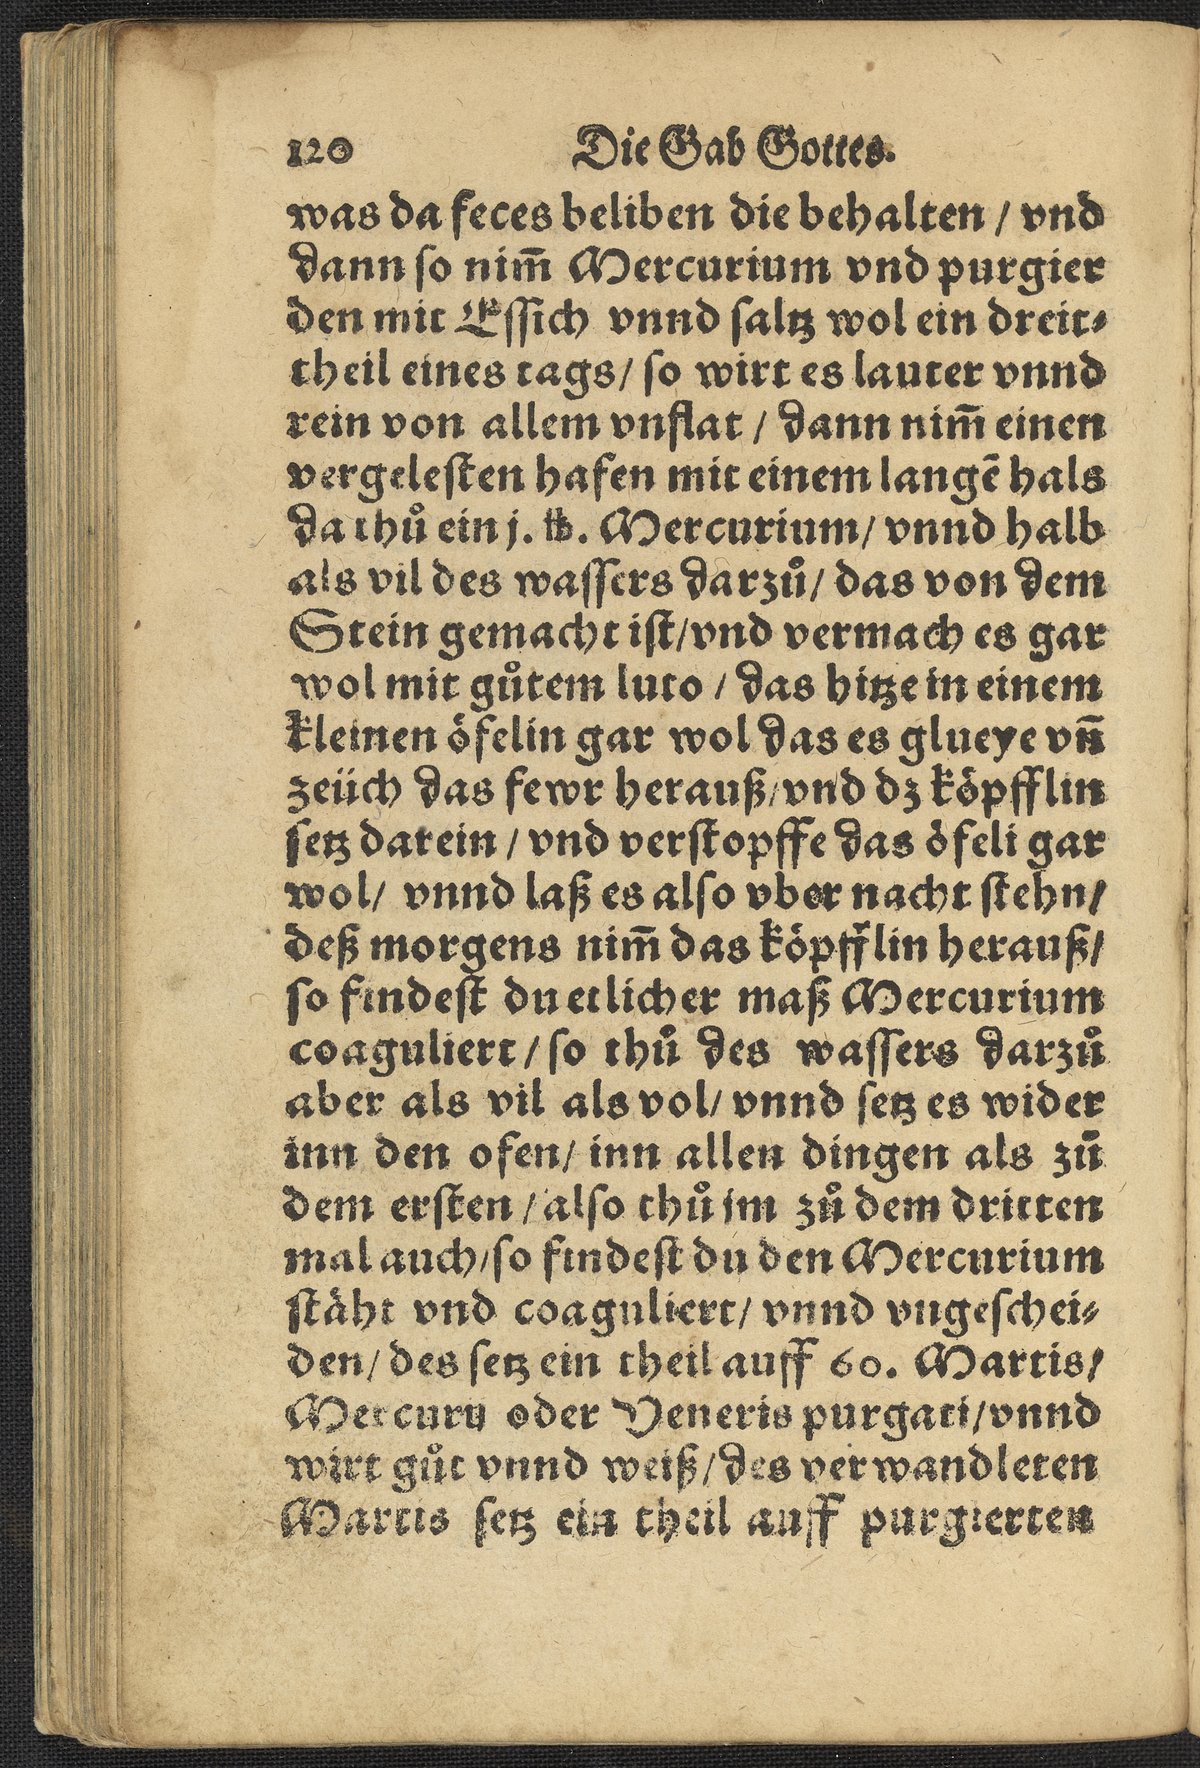 120 Die Gab Gottes.
was da feces beliben die behalten / vnd
dann so nim̃ Mercurium vnd purgier
den mit Essich vnnd saltz wol ein dreit⸗
theil eines tags / so wirt es lauter vnnd
rein von allem vnflat / dann nim̃ einen
vergelesten hafen mit einem langẽ hals
da thů ein j. ℔. Mercurium / vnnd halb
als vil des wassers darzů / das von dem
Stein gemacht ist / vnd vermach es gar
wol mit gůtem luto / das hitze in einem
kleinen öfelin gar wol das es glueye vñ
zeüch das fewr herauß / vnd dz köpfflin
setz darein / vnd verstopffe das öfeli gar
wol / vnnd laß es also vber nacht stehn /
deß morgens nim̃ das köpfflin herauß /
so findest du etlicher maß Mercurium
coaguliert / so thů des wassers darzů
aber als vil als vol / vnnd setz es wider
inn den ofen / inn allen dingen als zů
dem ersten / also thů im zů dem dritten
mal auch / so findest du den Mercurium
stäht vnd coaguliert / vnnd vngeschei⸗
den / des setz ein theil auff 60. Martis /
Mercurij oder Veneris purgati / vnnd
wirt gůt vnnd weiß / des verwandleten
Martis setz ein theil auff purgierten